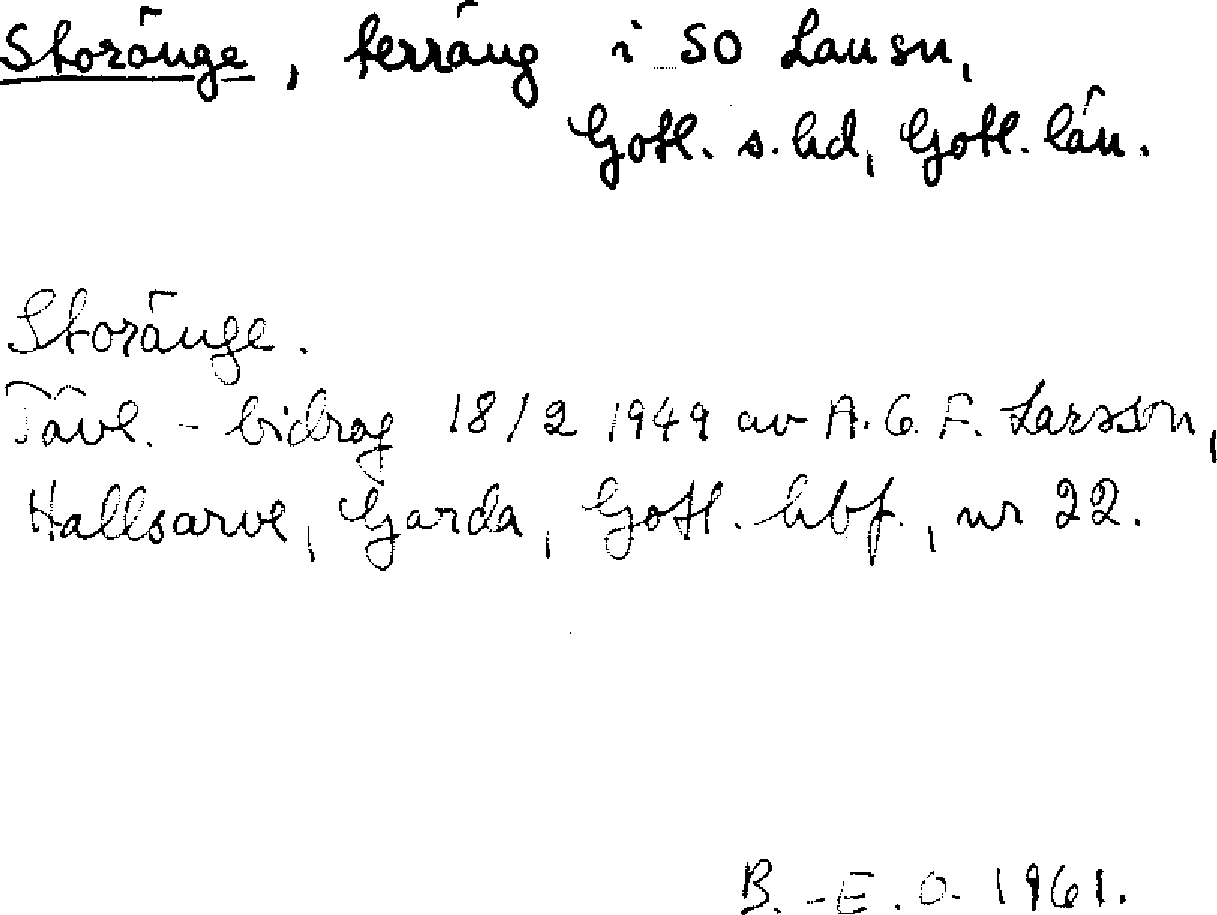 Storänge, terräng i SO Lau sn,
Gotl. s. hd, Gotl. län.
Storänge.
Tävl.-bidrag 18/2 1949 av A. G. F. Larsson,
Hallsarve, Garda, Gotl. hbf., nr 22.
B.-E. O. 1961.